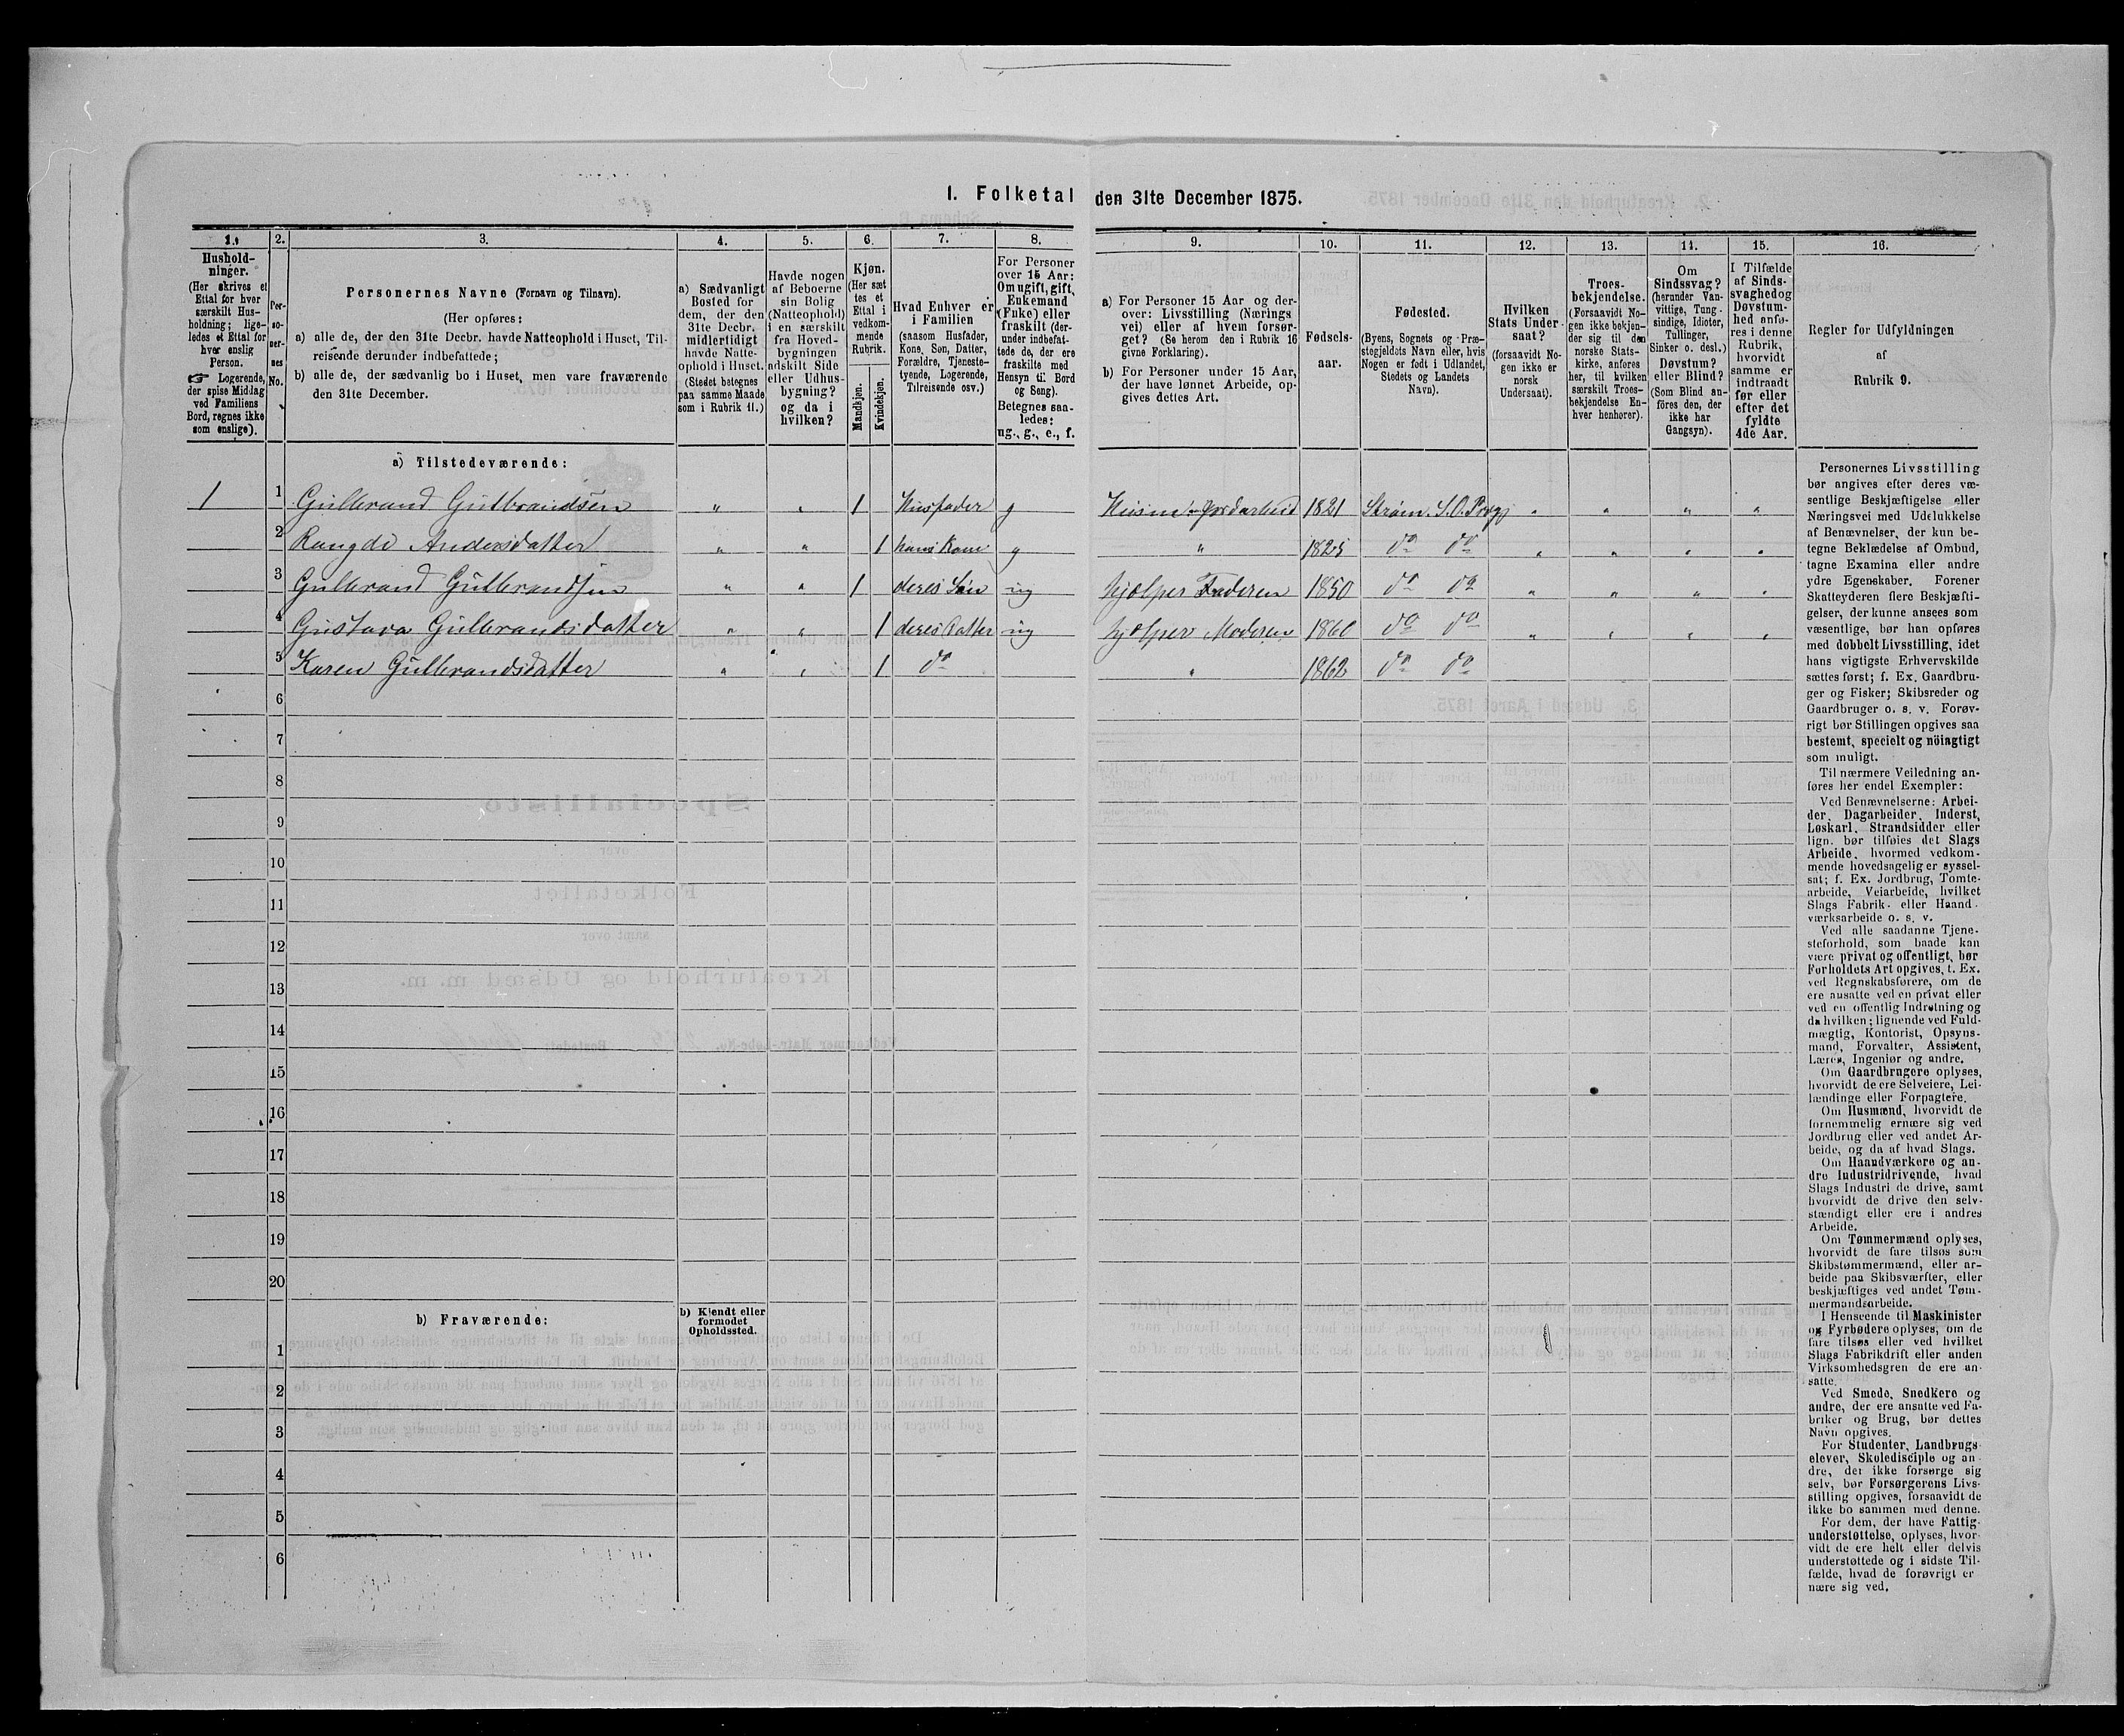 1. Folketal den 31te December 1875.
1. 2. 3. 4. 5. 6. 7. 8. 9. 10. 11. 12. 13. 14. 15. 16.
Hushold-
ninger.
(Her skrives et
Ettal for hver
særskilt Hus-
holdning; lige-
ledes et Ettal for
hver enslig
Person.
☞ Logerende,
der spise Middag
ved Familiens
Bord, regnes ikke
som enslige).
Per-
so-
ner-
nes
No.
Personernes Navne (Fornavn og Tilnavn).
(Her opføres:
a) alle de, der den 31te Decbr. havde Natteophold i Huset, Til-
reisende derunder indbefattede;
b) alle de, der sædvanlig bo i Huset, men vare fraværende
den 31te December.
a) Sædvanligt
Bosted for
dem, der den
31te Decbr.
midlertidigt
havde Natte-
ophold i Huset.
(Stedet betegnes
paa samme Maade
som i Rubrik 11.)
Havde nogen
af Beboerne
sin Bolig
(Natteophold)
i en særskilt
fra Hoved-
bygningen
adskilt Side
eller Udhus-
bygning?
og da i
hvilken?
Kjøn.
(Her sæt
tes et
Ettal i
vedkom-
mende
Rubrik.
Mandkjøn.
Kvindekjøn.
Hvad Enhver er
i Familien
(saasom Husfader,
Kone, Søn, Datter,
Forældre, Tjeneste-
tyende, Logerende,
Tilreisende osv.)
For Personer
over 15 Aar:
Om ugift, gift,
Enkemand
(Enke) eller
fraskilt (der-
under indbefat-
tede de, der ere
fraskilte med
Hensyn til Bord
og Seng).
Betegnes saa-
ledes:
ug., g., e., f.
a) For Personer 15 Aar og der-
over: Livsstilling (Nærings
vei) eller af hvem forsør-
get? (Se herom den i Rubrik 16
givne Forklaring).
b) For Personer under 15 Aar,
der have lønnet Arbeide, op-
gives dettes Art.
Fødsels-
aar.
Fødested.
(Byens, Sognets og Præ-
stegjeldets Navn eller, hvis
Nogen er født i Udlandet,
Stedets og Landets
Navn).
Hvilken
Stats Under-
saat?
(forsaavidt No-
gen ikke er
norsk
Undersaat).
Troes-
bekjendelse.
(Forsaavidt No-
gen ikke bekjen-
der sig til den
norske Stats-
kirke, anføres
her, til hvilken
særskilt Troes-
bekjendelse En-
hver henhører).
Om
Sindssvag?
(herunder Van-
vittige, Tung-
sindige, Idioter,
Tullinger,
Sinker o. desl.)
Døvstum?
eller Blind?
(Som Blind an-
föres den, der
ikke har
Gangsyn).
I Tilfælde
af Sinds-
svaghed og
Døvstum-
hed anfø-
res i denne
Rubrik,
hvorvidt
samme er
indtraadt
før eller
efter det
fyldte
4de Aar.
Regler for Udfyldningen
af
Rubrik 9.
a) Tilstedeværende:
1 1 Gulbrand Gulbrandsen " " 1 Husfader g Husm. Jordarbeid 1821 Strøm. S.O. Prægj " " " "
2 Rangdi Andersdatter " " 1 hans Kone g " 1825 do do " " " "
3 Gulbrand Gulbrandsen " " 1 deres Søn ug hjælper Faderen 1850 do do " " " "
4 Gustava Gulbrandsdatter " " 1 deres Datter ug hjælper Moderen 1860 do do " " " "
5 Karen Gulbrandsdatter " " 1 do " 1862 do do
6
7
8
9
10
11
12
13
14
15
16
17
18
19
20
b) Fraværende:
b) Kjendt eller
formodet
Opholdssted.
1
2
3
4
5
6
Personernes Livsstilling
bør angives efter deres væ-
sentlige Beskjæftigelse eller
Næringsvei med Udelukkelse
af Benævnelser, der kun be-
tegne Beklædelse af Ombud,
tagne Examina eller andre
ydre Egenskaber. Forener
Skatteyderen flere Beskjæfti-
gelser, der kunne ansees som
væsentlige, bør han opføres
med dobbelt Livsstilling, idet
hans vigtigste Erhvervskilde
sættes først; f. Ex. Gaardbru-
ger og Fisker; Skibsreder og
Gaardbruger o. s. v. Forøv-
rigt bør Stillingen opgives saa
bestemt, specielt og nöiagtigt
som muligt.
Til nærmere Veiledning an-
føres her endel Exempler:
Ved Benævnelserne: Arbei-
der, Dagarbeider, Inderst,
Løskarl, Strandsidder eller
lign. bør tilføies det Slags
Arbeide, hvormed vedkom-
mende hovedsagelig er syssel-
sat; f. Ex. Jordbrug, Tomte-
arbeide, Veiarbeide, hvilket
Slags Fabrik- eller Haand-
værksarbeide o. s. v.
Ved alle saadanne Tjene-
steforhold, som baade kan
være privat og offentligt, bør
Forholdets Art opgives, t. Ex.
ved Regnskabsførere, om de
ere ansatte ved en privat eller
ved en offentlig Indretning og
da hvilken; lignende ved Fuld-
mægtig, Kontorist, Opsyns-
mand, Forvalter, Assistent,
Lærer, Ingeniør og andre.
Om Gaardbrugere oplyses,
hvorvidt de ere Selveiere, Lei-
lændinge eller Forpagtere.
Om Husmænd, hvorvidt de
fornemmelig ernære sig ved
Jordbrug eller ved andet Ar-
beide, og da af hvad Slags.
Om Haandværkere og an-
dre Industridrivende, hvad
Slags Industri de drive, samt
hvorvidt de drive den selv-
stændigt eller ere i andres
Arbeide.
Om Tømmermænd oplyses,
hvorvidt de fare tilsøs som
Skibstømmermænd, eller ar-
beide paa Skibsværfter, eller
beskjæftiges ved andet Tøm-
mermandsarbeide.
I Henseende til Maskinister
og Fyrbødere oplyses, om de
fare tilsøs eller ved hvilket
Slags Fabrikdrift eller anden
Virksomhedsgren de ere an-
satte.
Ved Smede, Snedkere og
andre, der ere ansatte ved Fa-
briker og Brug, bør dettes
Navn opgives.
For Studenter, Landbrugs-
elever, Skoledisciple og an-
dre, der ikke forsørge sig
selv, bør Forsørgerens Livs-
stilling opgives, forsaavidt de
ikke bo sammen med denne.
For dem, der have Fattig-
understøttelse, oplyses, hvor-
vidt de ere helt eller delvis
understøttede og i sidste Til-
fælde, hvad de forøvrigt er
nære sig ved.